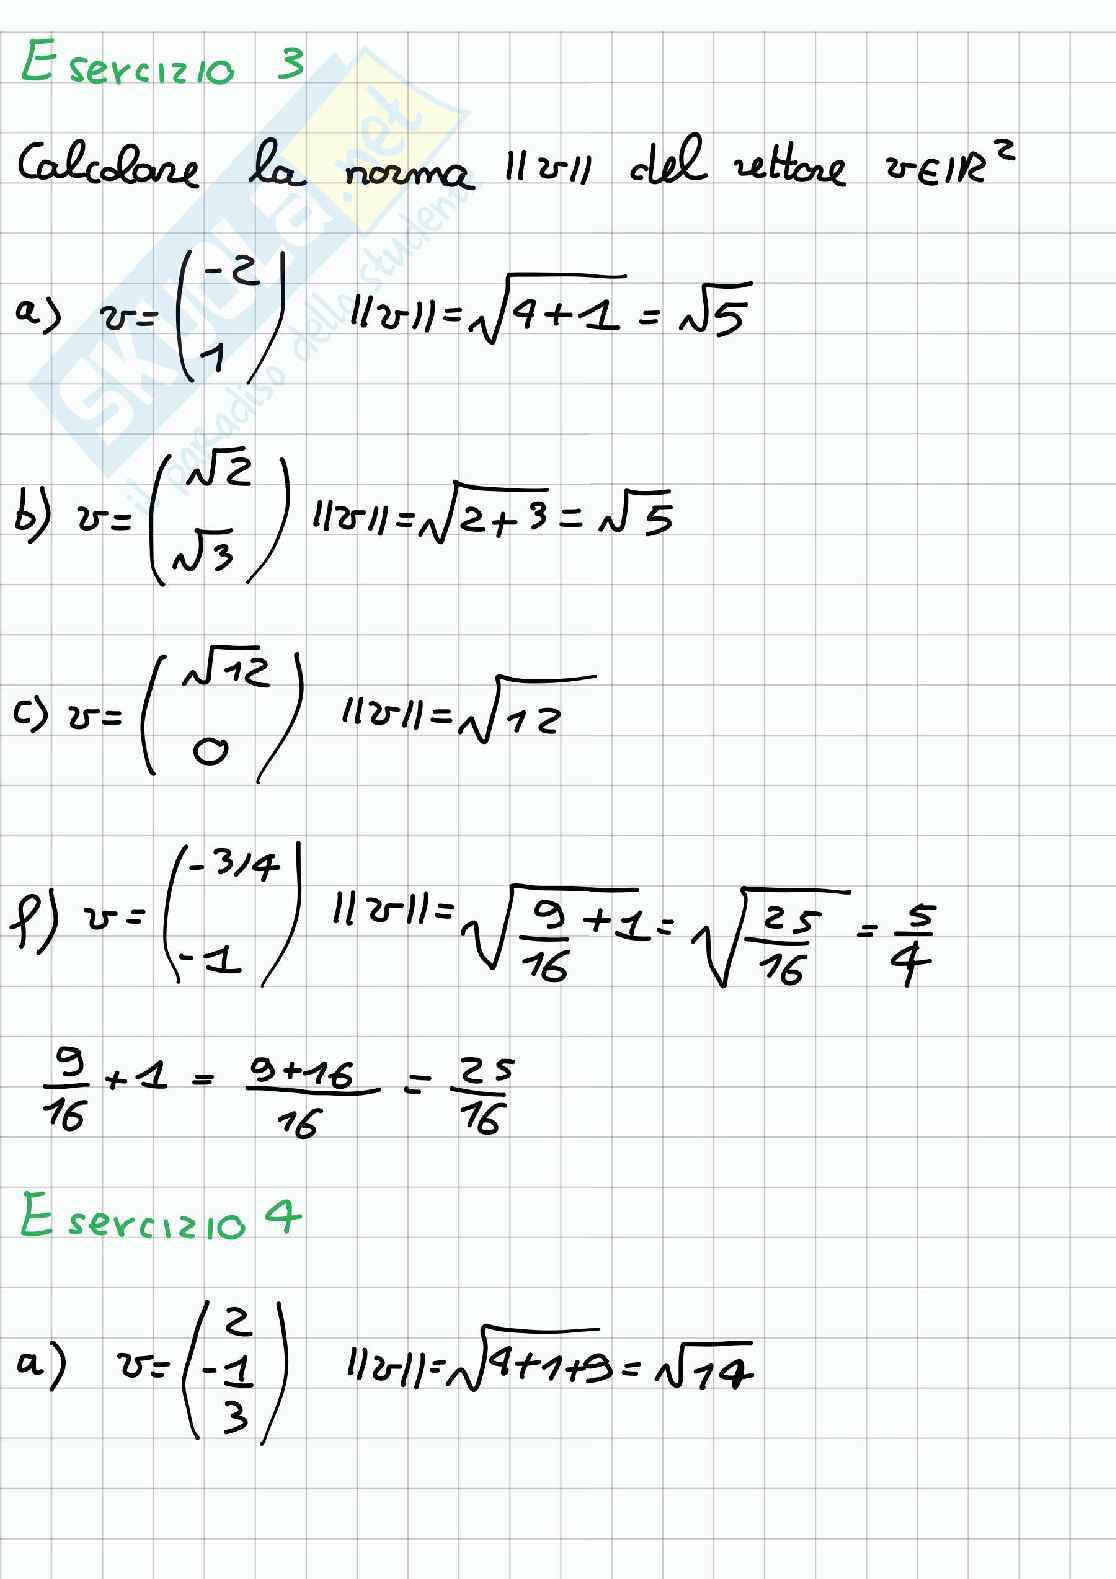 Esercizio 3
Calcolare la norma ||v|| del vettore v∈ℝ²
a) v = (-2 1) ||v|| = √(4+1) = √5
b) v = (√2 √3) ||v|| = √(2+3) = √5
c) v = (√12 0) ||v|| = √12
f) v = (-3/4 -1) ||v|| = √(9/16 + 1) = √(25/16) = 5/4
9/16 + 1 = (9+16)/16 = 25/16
Esercizio 4
a) v = (2 -1 3) ||v|| = √(4+1+9) = √14
SKUOLA.net
il paradiso dello studente